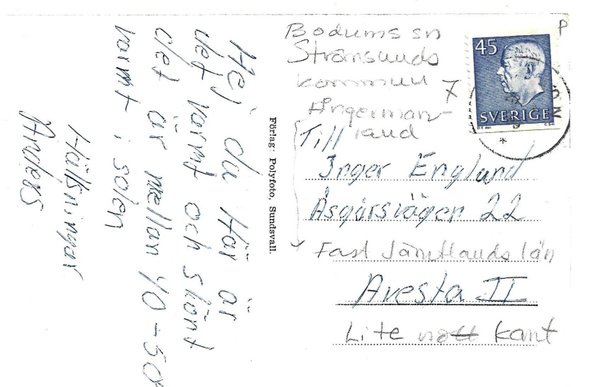 Hej du Här är
det varmt och skönt
det är mellan 40-50°
varmt i solen
Hälsningar
Anders
Förlag: Polyfoto, Sundsvall.
Bodums sn
Strömsunds
kommun
Ångerman-
land
7
P
45
SVERIGE
Till
Inger Englund
Åsgårsvägen 22
Fast Jämtlands län
Avesta II
Lite nött kant